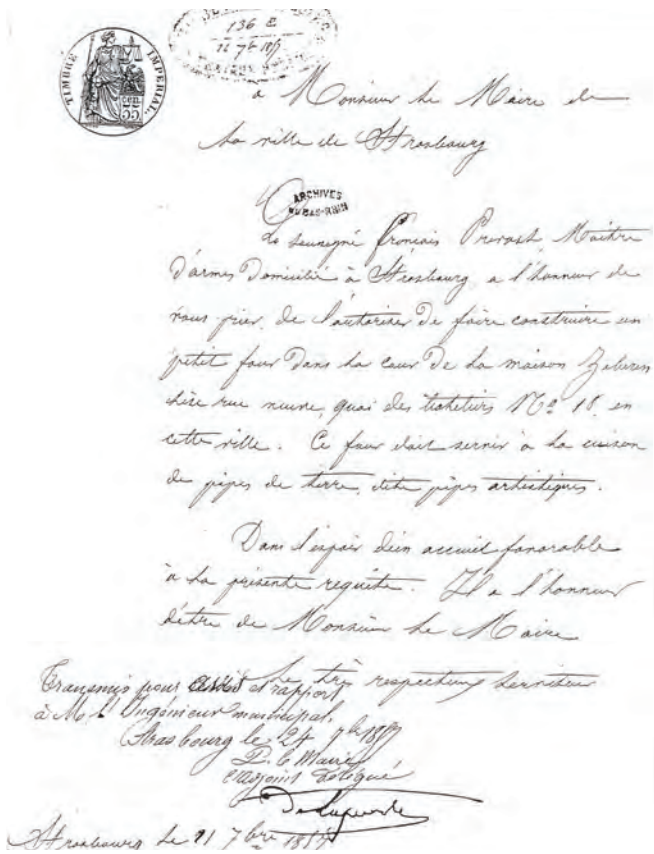 TIMBRE IMPERIAL.
55 cen.
136 E
à Monsieur Le Maire de
La ville de Strasbourg
ARCHIVES
DU BAS-RHIN
Le sousigné françois Prevost, Maître
d'armes Domicilié à Strasbourg, a l'honneur de
vous prier, de l'autoriser De faire construire un
petit four Dans La cour De La maison
rue neuve, quai des Bateliers No 18, en
cette ville. Ce four doit servir à La cuison
de pipes de terre, dite pipes artistiques.
Dans l'espoir d'un acceuil favorable
à La présente requête. Il a l'honneur
d'être de Monsieur Le Maire
Le très respectueux serviteur
Transmis pour avis et rapport
à M. l'Ingénieur municipal.
Strasbourg le 24 7bre
P. le Maire
l'adjoint Délégué
Strasbourg Le 21 7bre